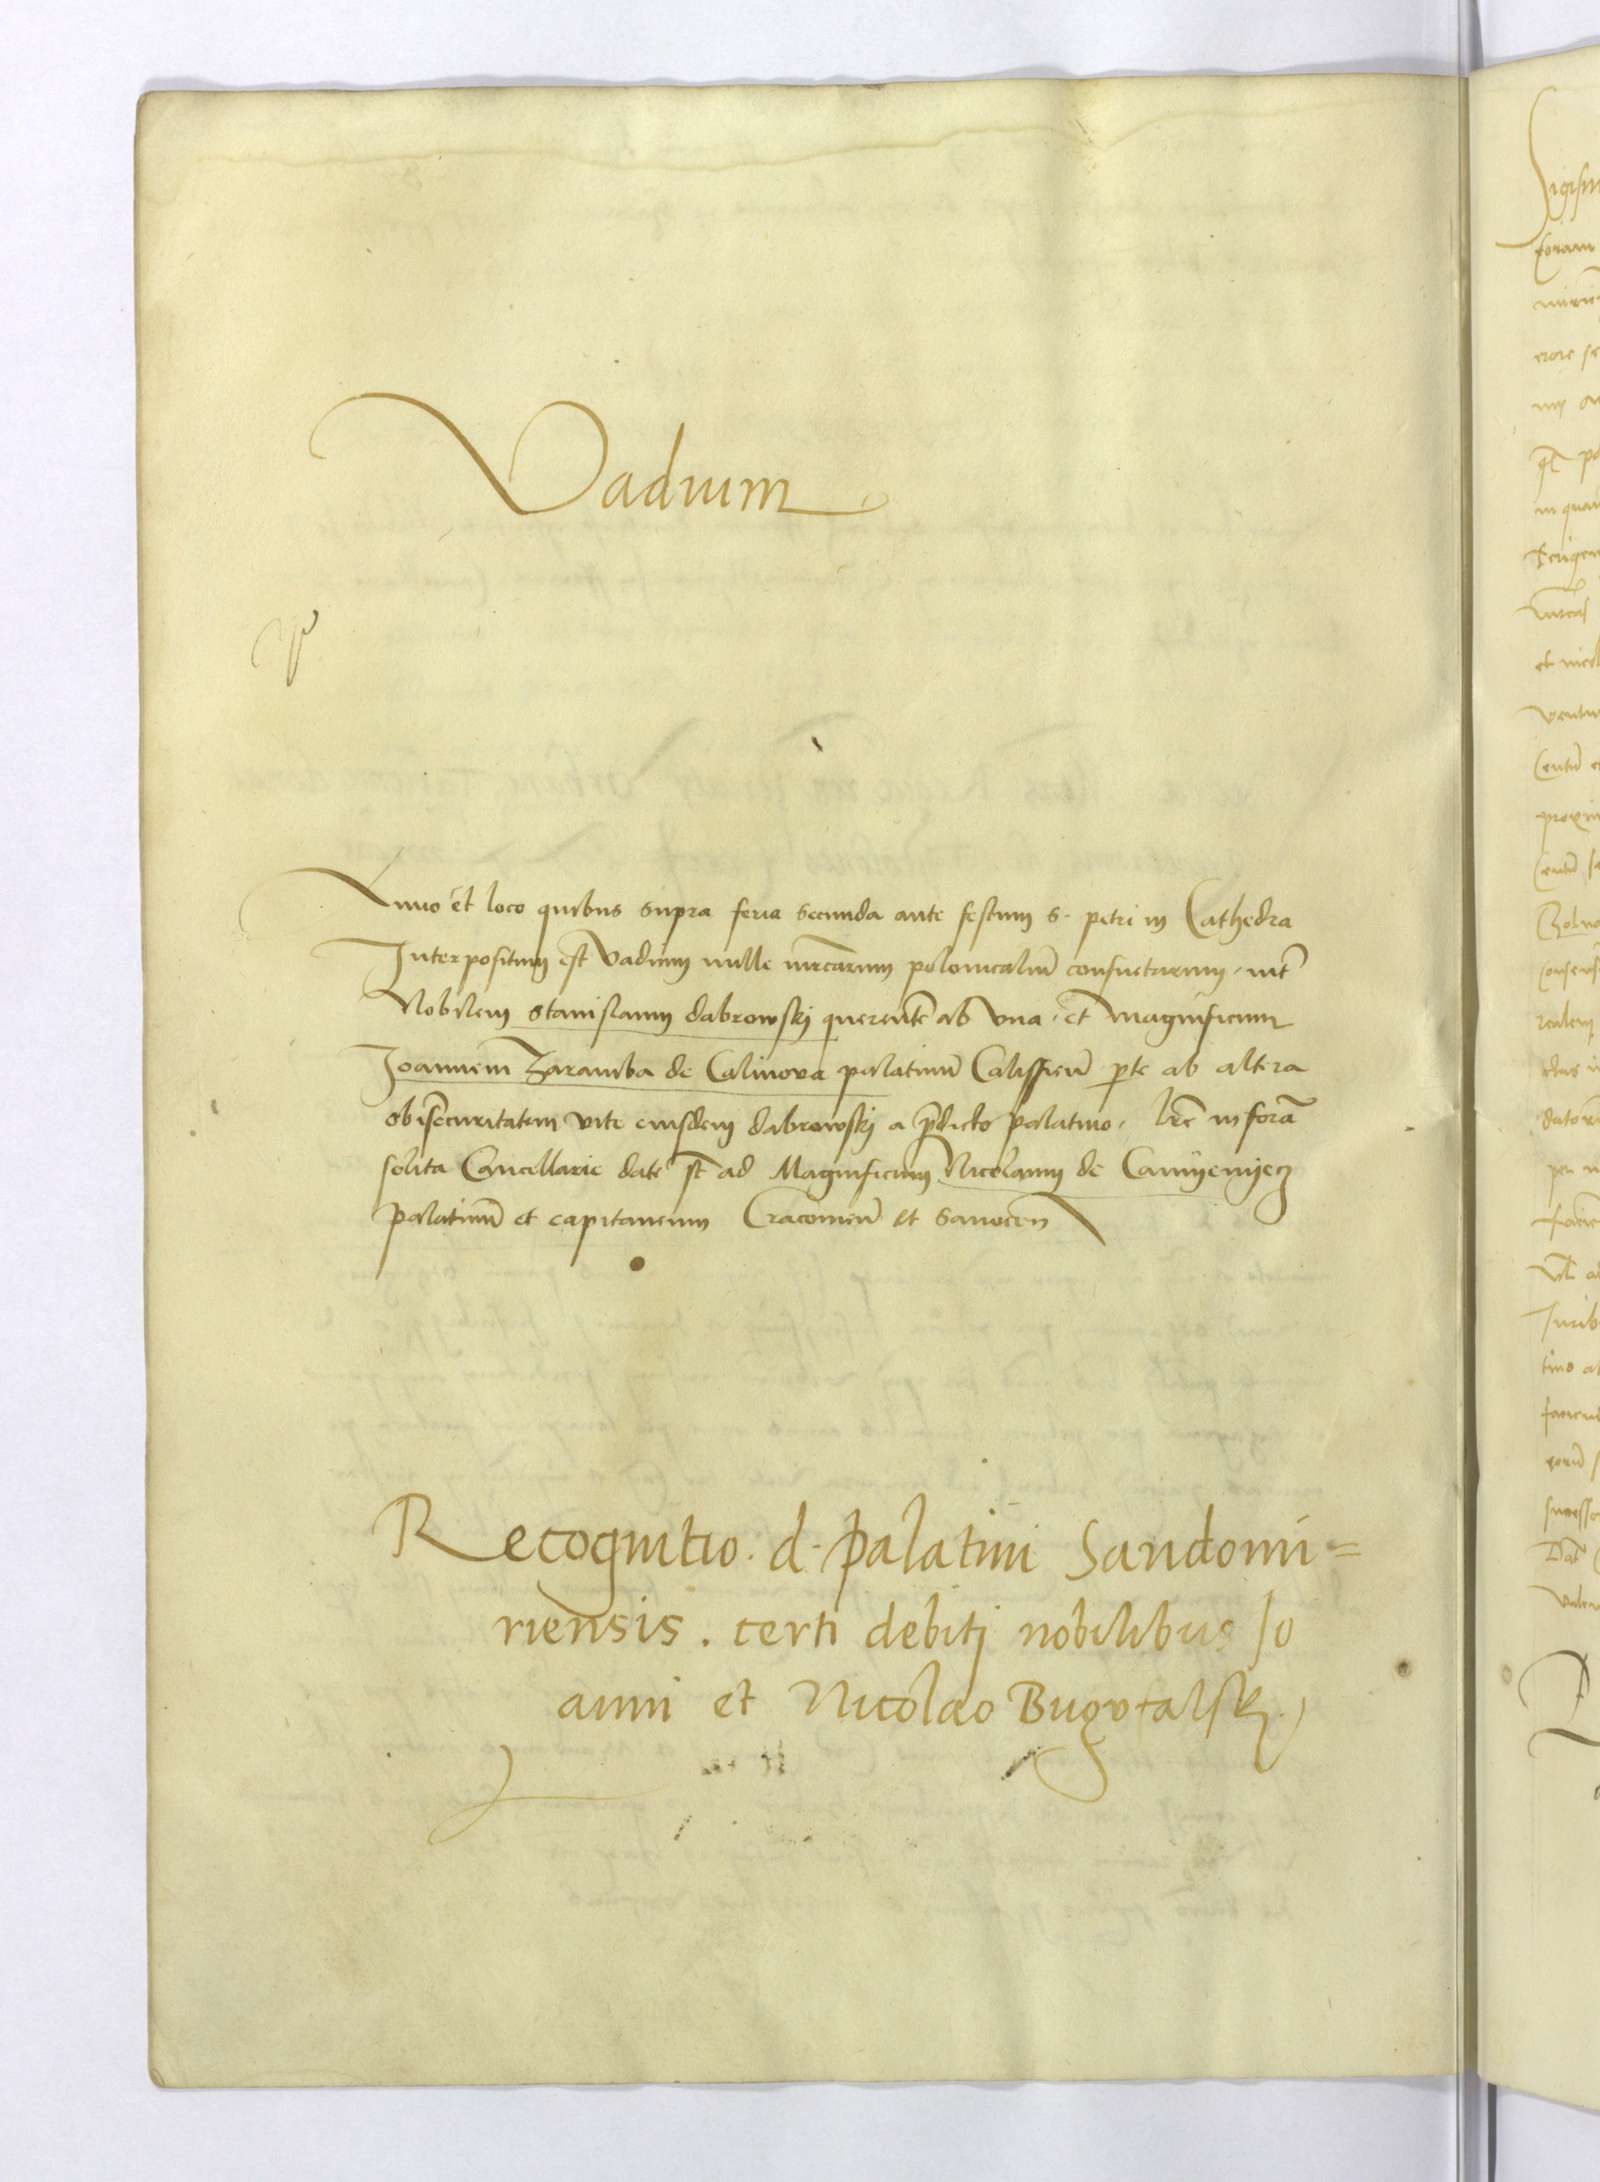 Vadium
Anno et loco quibus supra feria secunda ante festum s. petri in Cathedra
Interpositum est Vadium mille mrcarum polonicaliu consuetarum, int
Nobilem Stanislaum dabrowskj querente ab vna, et Magnificum
Joannem Zaramba de Calinova palatinu Calissien pte ab altera
ob securitatem vite eiusdem dabrowskj a pdicto palatino, lre in fora
solita Cancellarie date st ad Magnificum Nicolaum de Camÿenyecz
palatinu et capitaneum Cracovien et Sanocen
Recognitio. d. palatini Sandomi=
riensis. certi debitj nobilibus Jo
anni et Nicolao